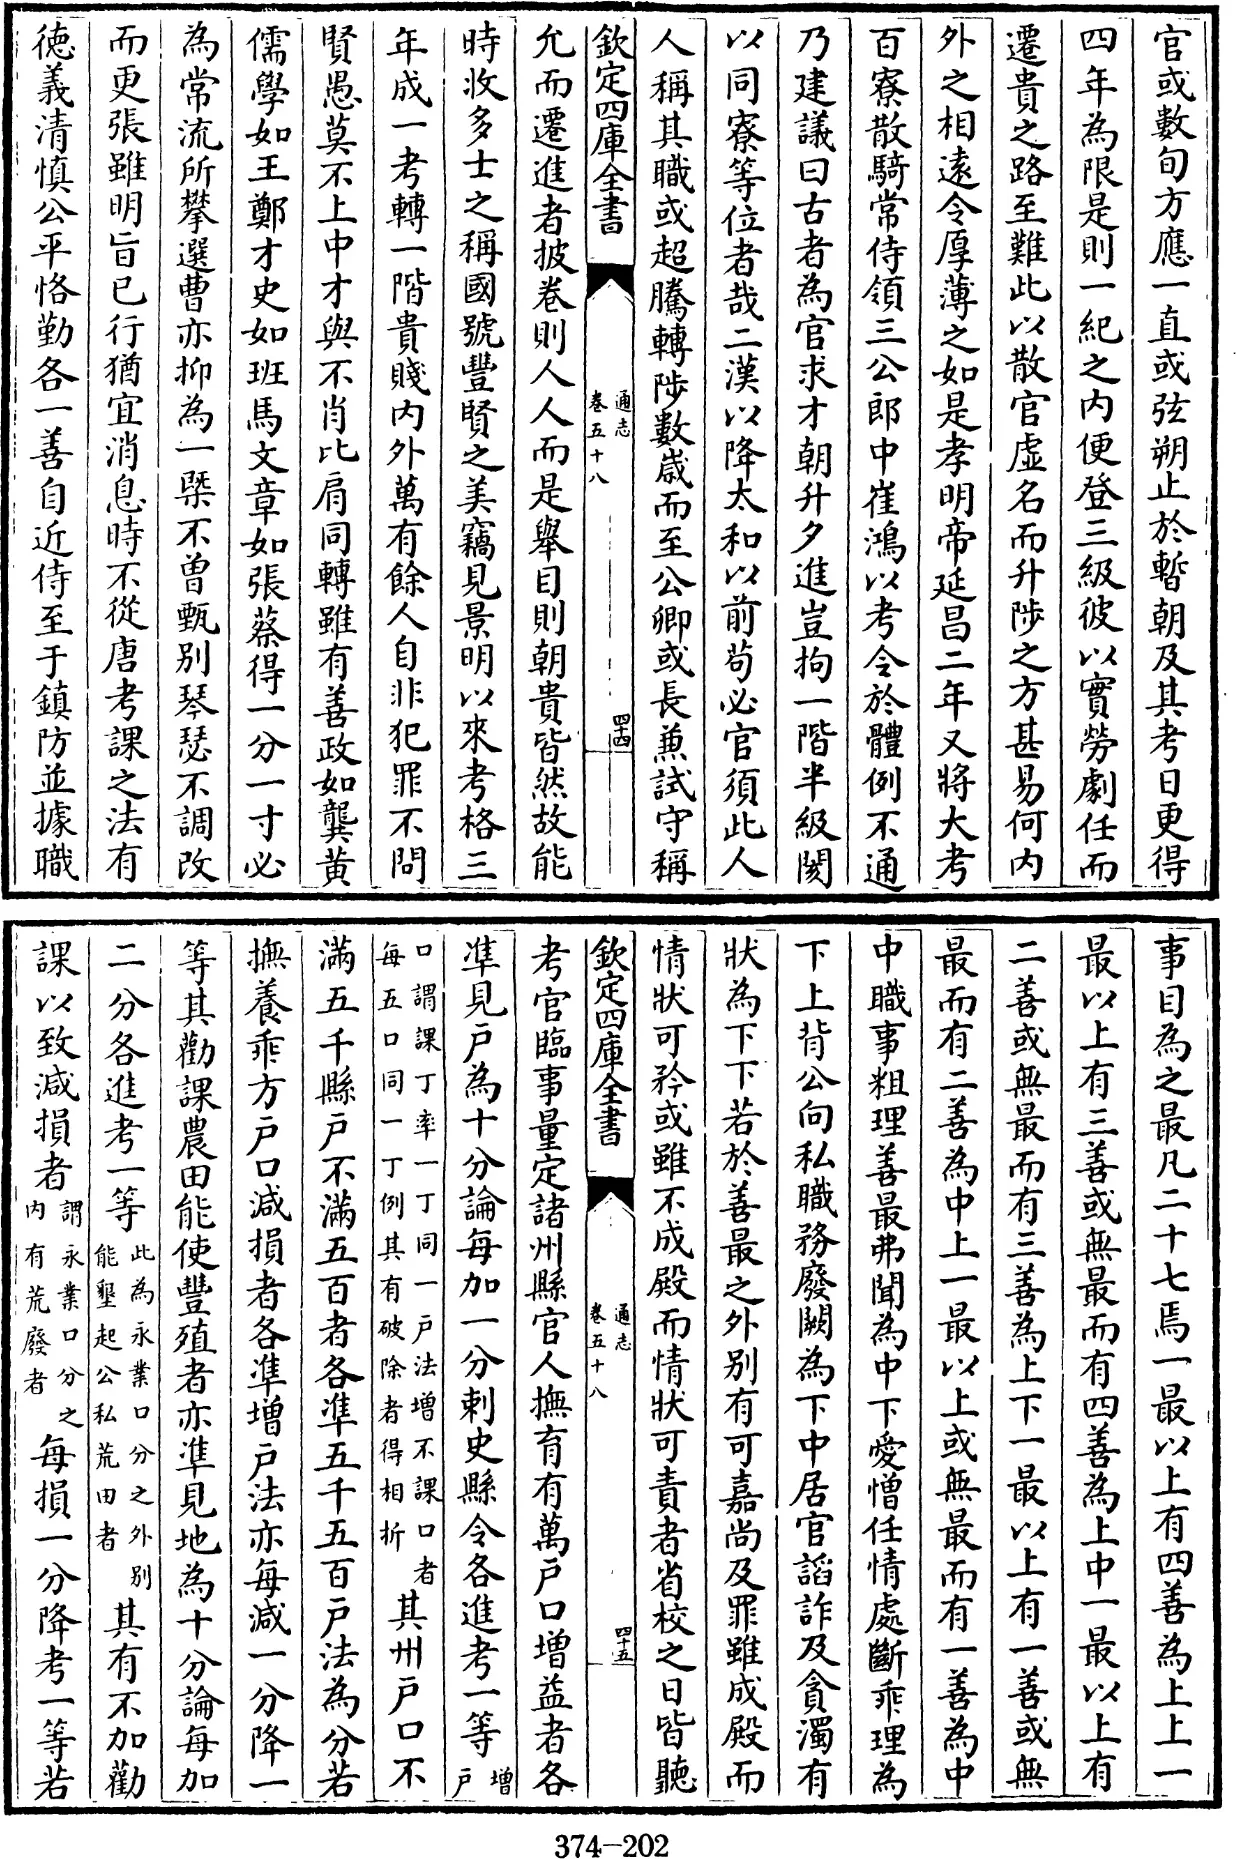 官或數旬方應一直或弦朔止於暫朝及其考日更得
四年為限是則一紀之内便登三級彼以實勞劇任而
遷貴之路至難此以散官虛名而升陟之方甚易何内
外之相遠令厚薄之如是孝明帝延昌二年又將大考
百寮散騎常侍領三公郎中崔鴻以考令於體例不通
乃建議曰古者為官求才朝升夕進豈拘一階半級闋
以同寮等位者哉二漢以降太和以前苟必官須此人
人稱其職或超騰轉陟數歲而至公卿或長兼試守稱
欽定四庫全書
通志
卷五十八
四十四
允而遷進者披卷則人人而是舉目則朝貴皆然故能
時收多士之稱國號豐賢之美竊見景明以來考格三
年成一考轉一階貴賤内外萬有餘人自非犯罪不問
賢愚莫不上中才與不肖比肩同轉雖有善政如龔黃
儒學如王鄭才史如班馬文章如張蔡得一分一寸必
為常流所攀選曹亦抑為一槩不曾甄别琴瑟不調改
而更張雖明旨已行猶宜消息時不從唐考課之法有
徳義清慎公平恪勤各一善自近侍至于鎮防並據職
事目為之最凡二十七焉一最以上有四善為上上一
最以上有三善或無最而有四善為上中一最以上有
二善或無最而有三善為上下一最以上有一善或無
最而有二善為中上一最以上或無最而有一善為中
中職事粗理善最弗聞為中下愛憎任情處斷乖理為
下上背公向私職務廢闕為下中居官諂詐及貪濁有
狀為下下若於善最之外别有可嘉尚及罪雖成殿而
情狀可矜或雖不成殿而情狀可責者省校之日皆聽
欽定四庫全書
通志
卷五十八
四十五
考官臨事量定諸州縣官人撫育有萬戸口増益者各
凖見戸為十分論每加一分刺史縣令各進考一等増戸
口謂課丁率一丁同一戸法増不課口者每五口同一丁例其有破除者得相折其州戸口不
滿五千縣戸不滿五百者各凖五千五百戸法為分若
撫養乖方戸口減損者各凖増戸法亦每減一分降一
等其勸課農田能使豐殖者亦凖見地為十分論每加
二分各進考一等此為永業口分之外别能墾起公私荒田者其有不加勸
課以致減損者謂永業口分之内有荒廢者每損一分降考一等若
374-202